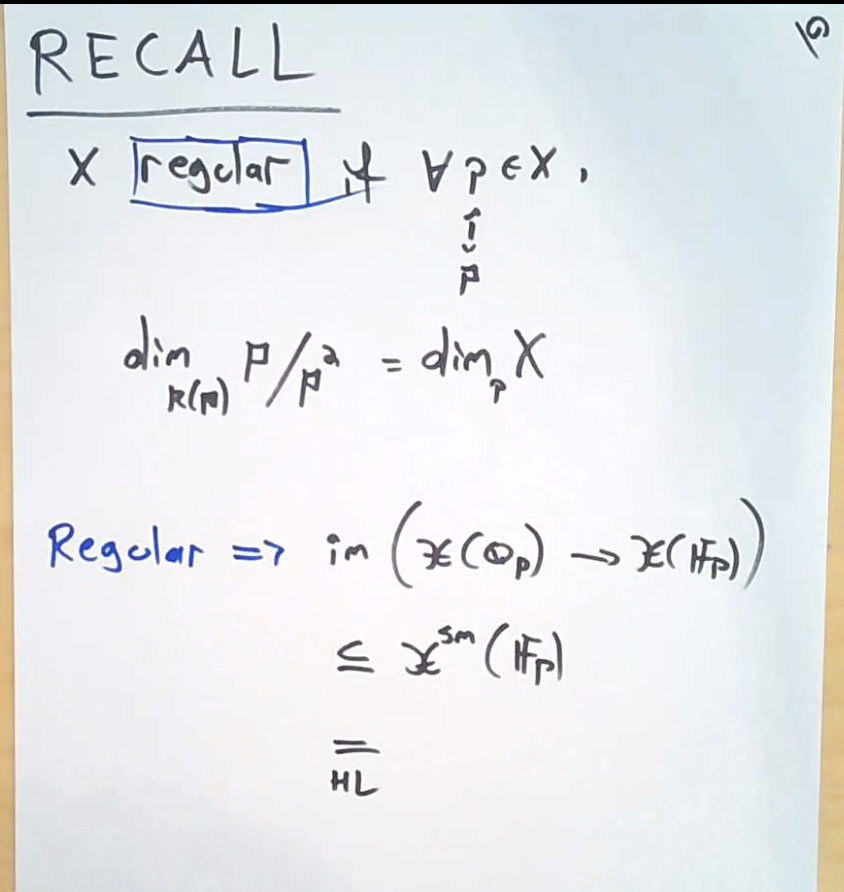 19
RECALL
X regular if ∀ p ∈ X,
↕
𝔭
dim_{k(𝔭)} 𝔭/𝔭² = dim_p X
Regular => im (𝒳(ℚ_p) → 𝒳(𝔽_p))
⊆ 𝒳^{sm}(𝔽_p)
=
HL